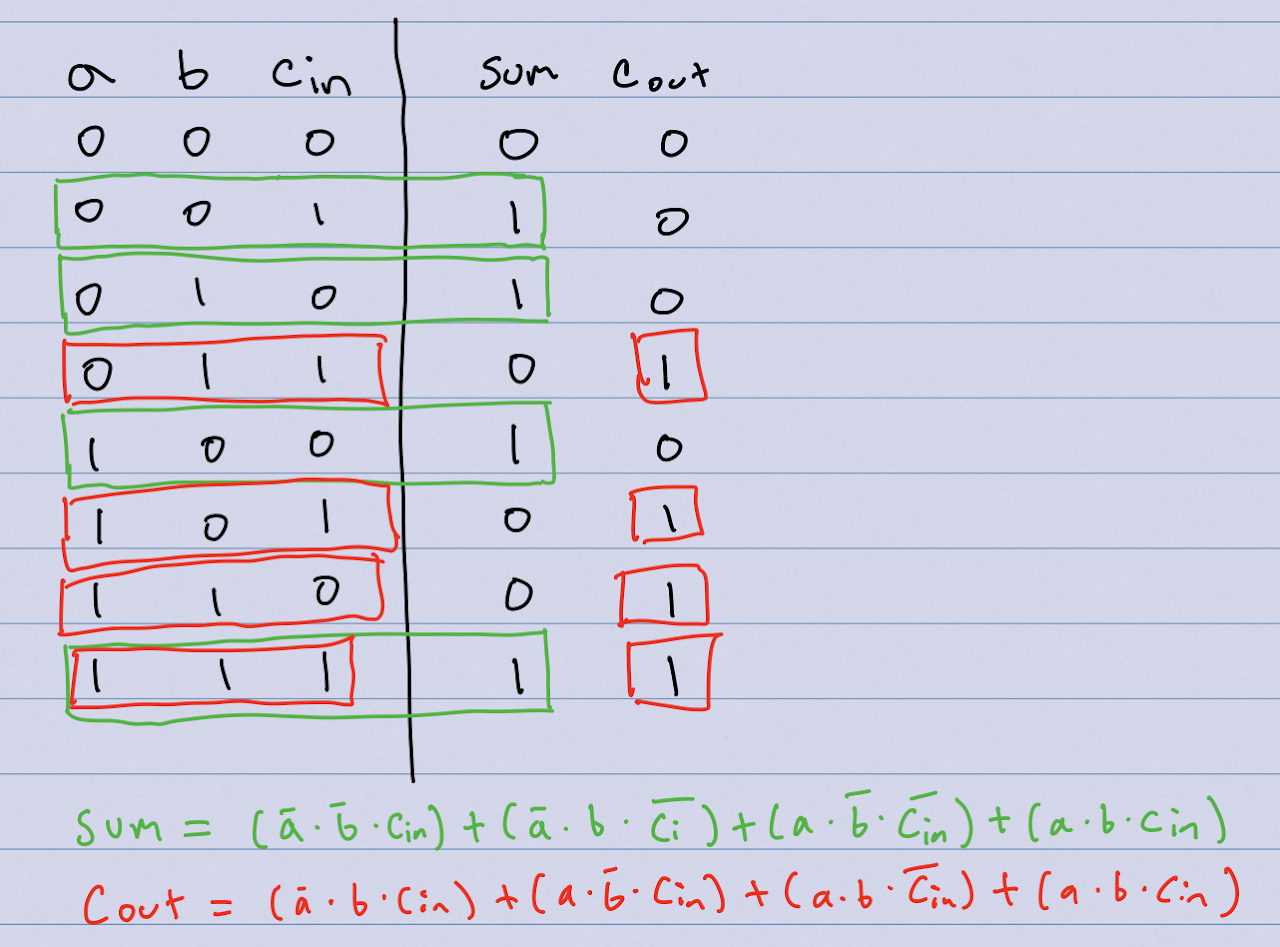 a b Cin sum Cout
0 0 0 0 0
0 0 1 1 0
0 1 0 1 0
0 1 1 0 1
1 0 0 1 0
1 0 1 0 1
1 1 0 0 1
1 1 1 1 1
sum = (a̅ · b̅ · Cin) + (a̅ · b · C̅i̅) + (a · b̅ · C̅i̅n̅) + (a · b · Cin)
Cout = (a̅ · b · Cin) + (a · b̅ · Cin) + (a · b · C̅i̅n̅) + (a · b · Cin)